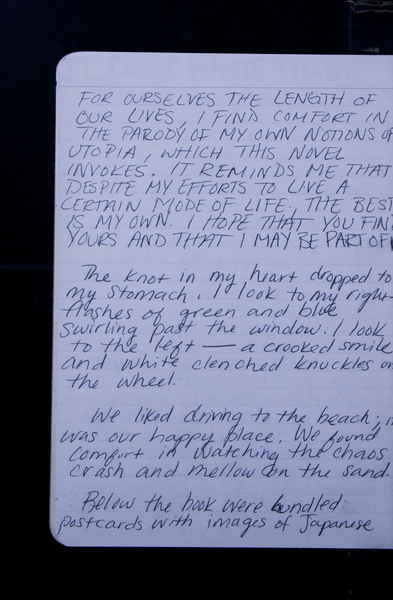 FOR OURSELVES THE LENGTH OF
OUR LIVES, I FIND COMFORT IN
THE PARODY OF MY OWN NOTIONS OF
UTOPIA, WHICH THIS NOVEL
INVOKES. IT REMINDS ME THAT
DESPITE MY EFFORTS TO LIVE A
CERTAIN MODE OF LIFE, THE BEST
IS MY OWN. I HOPE THAT YOU FIN
YOURS AND THAT I MAY BE PART OF
The knot in my heart dropped to
my stomach. I look to my right-
flashes of green and blue
swirling past the window. I look
to the left — a crooked smile
and white clenched knuckles on
the wheel.
We liked driving to the beach; i
was our happy place. We found
comfort in watching the chaos
crash and mellow on the sand.
Below the book were bundled
postcards with images of Japanese